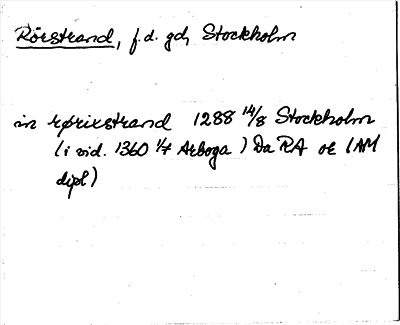 Rörstrand, f.d. gd, Stockholm
in rørixstrand 1288 14/8 Stockholm
(i vid. 1360 1/7 Arboga) Da RA oc (AM
dipl)